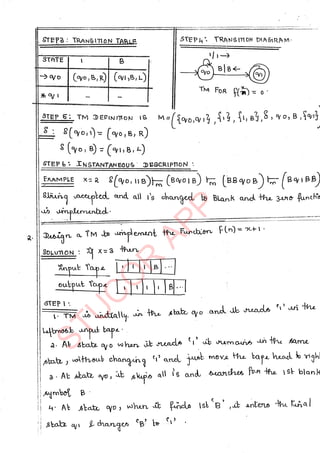 STEP3: TRANSITION TABLE
STATE 1 B
→ q0 (q0, B, R) (q1, B, L)
* q1 – –
STEP 4: TRANSITION DIAGRAM
1/1 →
q0 B|B ← q1
TM FOR f(n) = 0.
STEP 5: TM DEFINITION IS M = ({q0, q1}, {1}, {1, B}, δ, q0, B, {q1})
δ: δ(q0, 1) = (q0, B, R)
δ(q0, B) = (q1, B, L)
STEP 6: INSTANTANEOUS DESCRIPTION:
EXAMPLE x = 2 δ(q0, 11B) ⊢m (Bq01B) ⊢m (BBq0B) ⊢m (Bq1BB)
String accepted and all 1's changed to Blank and the zero functi
is implemented.
2. Design a TM to implement the function f(n) = x+1.
SOLUTION: If x = 3 then
Input Tape 1 1 1 B ...
output Tape 1 1 1 1 B ...
STEP 1:
1. TM is initially in the state q0 and it reads '1' in the
leftmost input tape.
2. At state q0 when it reads '1' it remains in the same
state, without changing '1' and just move the tape head to righ
3. At state q0, it skips all 1's and searches for the 1st blank
symbol B
4. At state q0, when it finds 1st 'B', it enters the final
state q1 & changes 'B' to '1'.
STUCOR APP